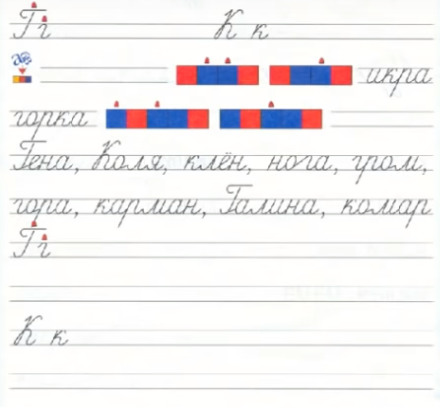 Г г К к
икра
горка
Гена, Коля, клён, нога, гром,
гора, карман, Галина, комар
Г г
К к